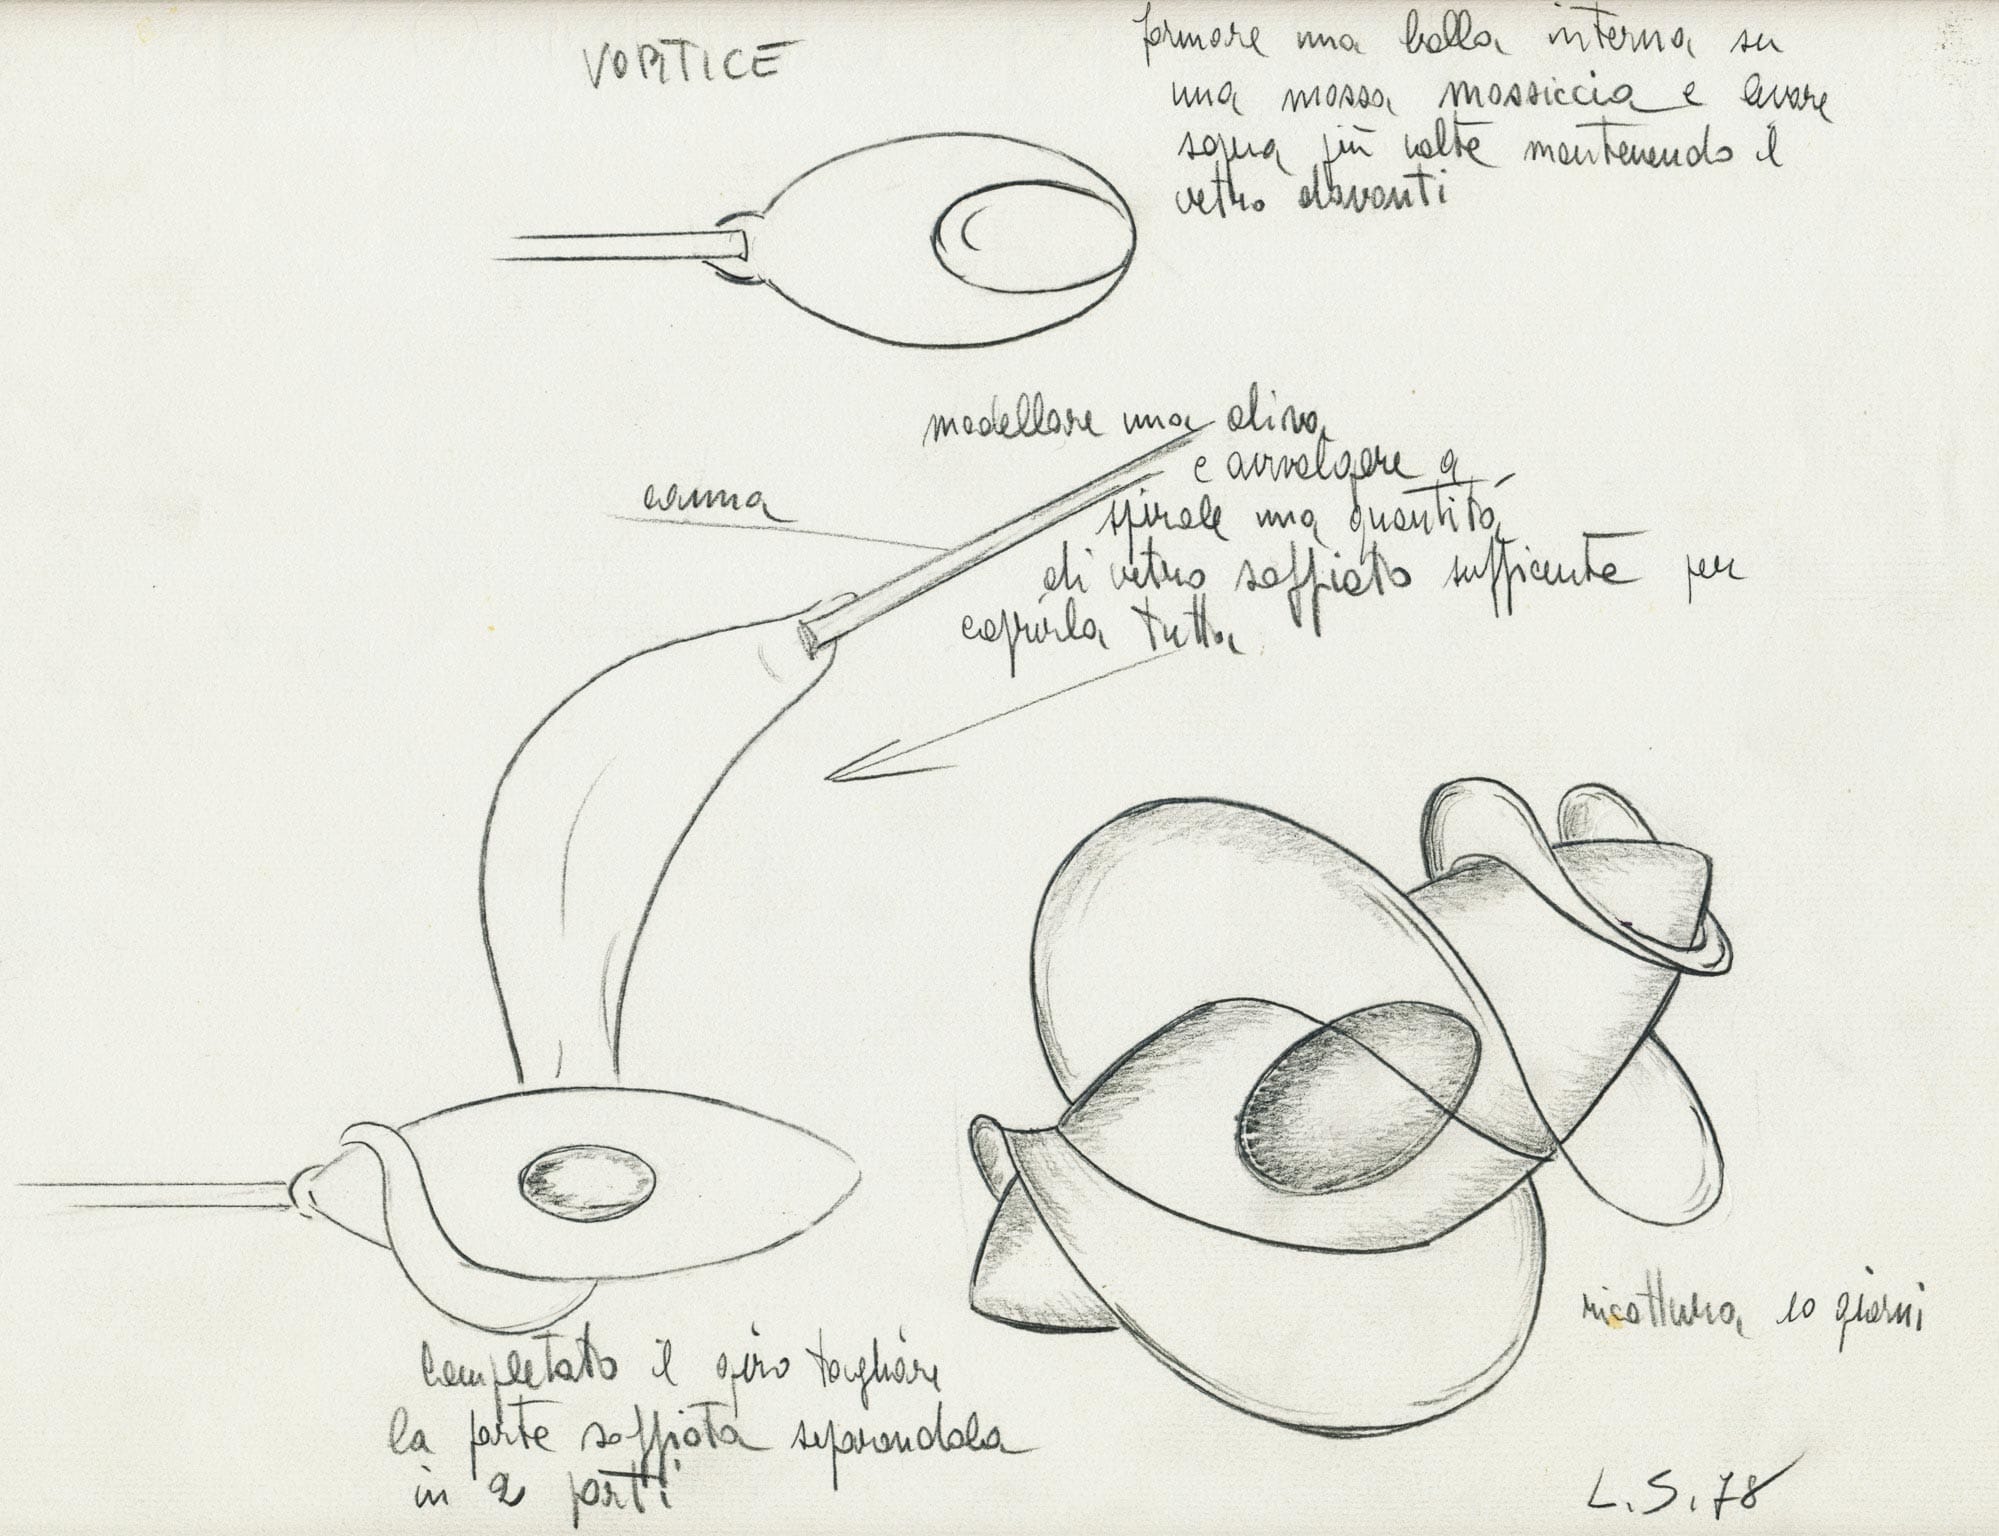 VORTICE
formare una bolla interna su
una massa massiccia e levare
sopra più volte mantenendo il
vetro davanti
modellare una oliva
e avvolgere a
spirale una quantità
di vetro soffiato sufficente per
coprirla tutta
canna
completato il giro tagliare
la parte soffiata separandola
in 2 parti
ricottura 10 giorni
L.S. 78